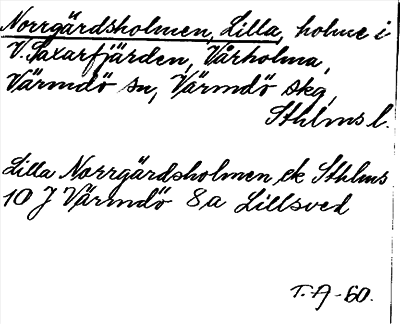 Norrgärdsholmen, Lilla, holme i
V. Saxarfjärden, Vårholma,
Värmdö sn, Värmdö skg,
Sthlms l.
Lilla Norrgärdsholmen ek Sthlms
10 J Värmdö 8a Lillsved
T.A-60.